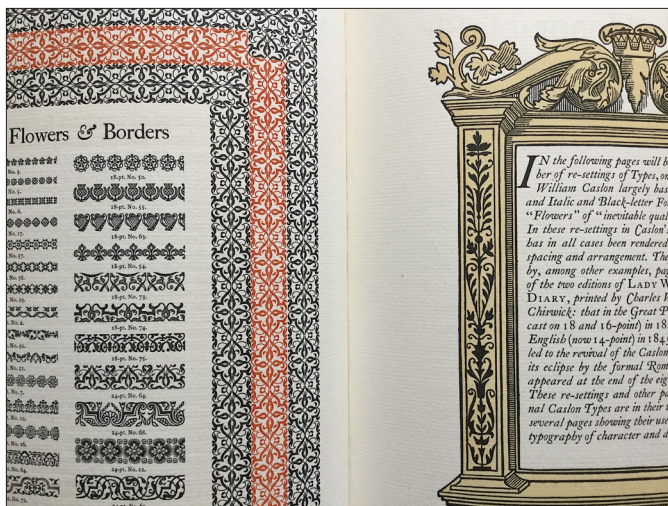 Flowers & Borders
No. 3.
No. 5.
No. 6.
No. 17.
No. 57.
No. 58.
No. 59.
No. 2.
No. 51.
No. 7.
18-pt. No. 50.
18-pt. No. 55.
18-pt. No. 63.
18-pt. No. 54.
18-pt. No. 73.
18-pt. No. 74.
18-pt. No. 75.
24-pt. No. 64.
24-pt. No. 68.
24-pt. No. 12.
IN the following pages will b
ber of re-settings of Types, on
William Caslon largely bas
and Italic and Black-letter Fo
"Flowers" of "inevitable qual
In these re-settings in Caslon's
has in all cases been rendered
spacing and arrangement. The
by, among other examples, pag
of the two editions of LADY W
DIARY, printed by Charles
Chiswick: that in the Great P
cast on 18 and 16-point) in 18
English (now 14-point) in 184
led to the revival of the Caslon
its eclipse by the formal Rom
appeared at the end of the eig
These re-settings and other pa
nal Caslon Types are in their
several pages showing their use
typography of character and d